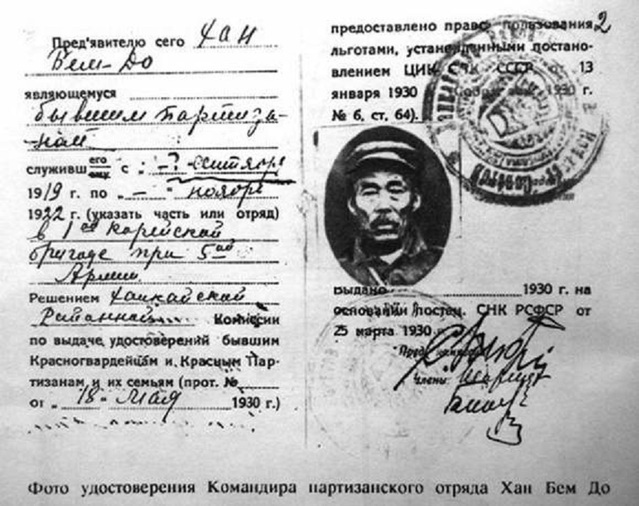 Пред'явителю сего Хан
Бем-До
являющемуся
бывшим партиза-
ном
служивш его ему с „-?" сентября
1919 г. по „-" ноябрь
1922 г. (указать часть или отряд)
в 1ой Корейской
бригаде при 5ой
Армии
Решением Ханкайской
Районной Комиссии
по выдаче удостоверений бывшим
Красногвардейцам и Красным Пар-
тизанам и их семьям (прот. №
от „18" Мая 1930 г.)
2
предоставлено право пользования
льготами, установленными постано-
влением ЦИК СНК СССР от 13
января 1930 г.
№ 6, ст, 64).
Выдано 1930 г. на
основании постен. СНК РСФСР от
25 марта 1930 г.
Члены:
Фото удостоверения Командира партизанского отряда Хан Бем До